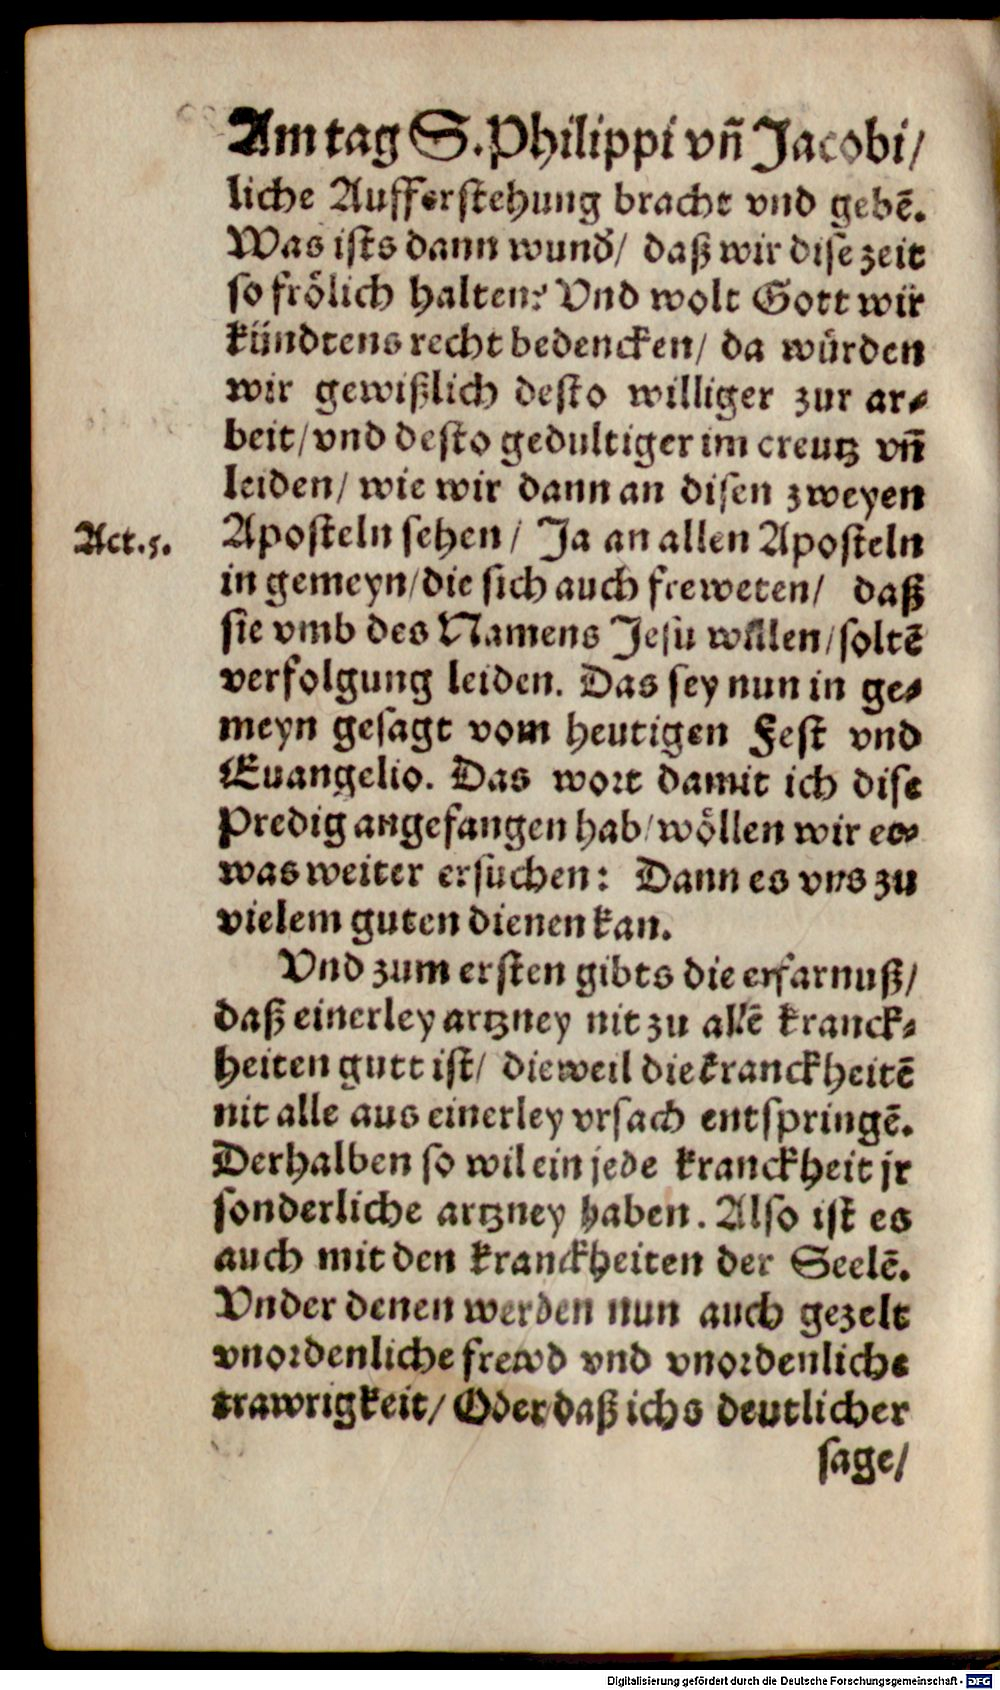 Am tag S. Philippi vñ Jacobi/
liche Aufferstehung bracht vnd gebē.
Was ists dann wund̃/ daß wir dise zeit
so frölich halten? Vnd wolt Gott wir
kündtens recht bedencken/ da würden
wir gewißlich desto williger zur ar⸗
beit/ vnd desto gedultiger im creutz vñ
leiden/ wie wir dann an disen zweyen
Act. 5.
Aposteln sehen/ Ja an allen Aposteln
in gemeyn/ die sich auch freweten/ daß
sie vmb des Namens Jesu willen/ soltē
verfolgung leiden. Das sey nun in ge⸗
meyn gesagt vom heutigen Fest vnd
Euangelio. Das wort damit ich dise
Predig angefangen hab/ wöllen wir et⸗
was weiter ersuchen: Dann es vns zu
vielem guten dienen kan.
Vnd zum ersten gibts die erfarnuß/
daß einerley artzney nit zu allē kranck⸗
heiten gutt ist/ dieweil die kranckheitē
nit alle aus einerley vrsach entspringē.
Derhalben so wil ein jede kranckheit jr
sonderliche artzney haben. Also ist es
auch mit den kranckheiten der Seelē.
Vnder denen werden nun auch gezelt
vnordenliche frewd vnd vnordenliche
trawrigkeit/ Oder daß ichs deutlicher
sage/
Digitalisierung gefördert durch die Deutsche Forschungsgemeinschaft - DFG